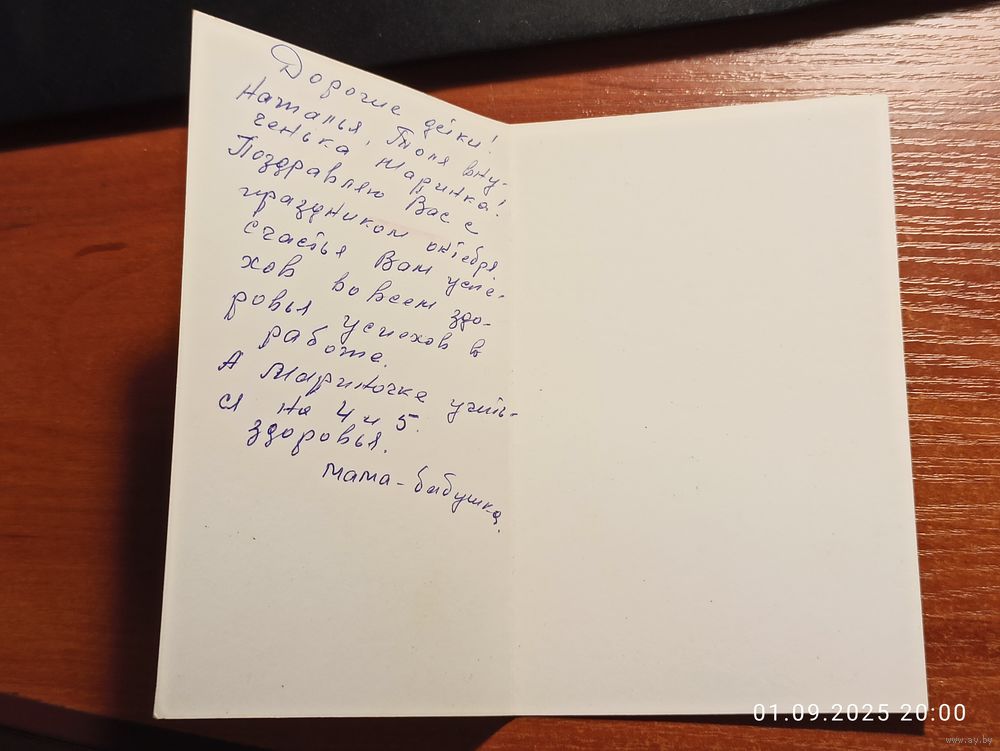 Дорогие детки!
Наталья, Толя вну-
ченька Маринка!
Поздравляю Вас с
праздником октября
счастья Вам успе-
хов во всем здо-
ровья успехов в
работе.
А Мариночке учить-
ся на 4 и 5.
здоровья.
мама-бабушка.
01.09.2025 20:00
www.ay.by